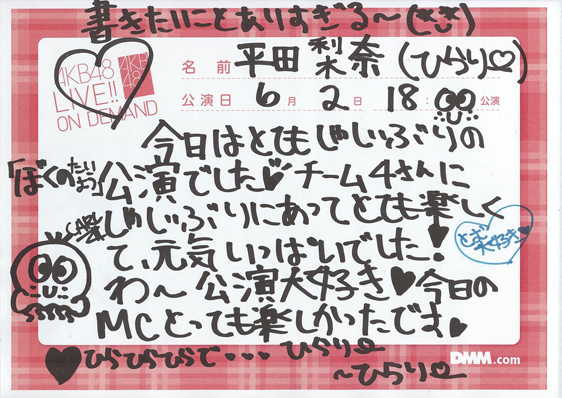 書きたいことありすぎる〜
AKB48
LIVE!!
ON DEMAND
AKB
48
名前 平田梨奈(ひらり♡)
公演日 6月2日 18:00公演
今日はとてもじゅしぶりの
「ぼくのたいよう」公演でした♥チーム4さんに
じゅしぶりにあってとても楽しく
て、元気いっぱいでした!
わ〜公演大好き♥今日の
MCとっても楽しかったです♥
大好き♥
♥ひらひらひらで・・・ひらり♡
〜ひらり♡
DMM.com